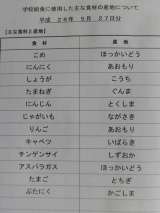 学校給食に使用した主な食材の産地について
平成 26年 9月 27日分
【主な食材と産地】
食材 産地
こめ ほっかいどう
にんにく あおもり
しょうが こうち
たまねぎ ぐんま
にんじん とくしま
じゃがいも ながさき
りんご あおもり
キャベツ いばらき
チンゲンサイ しずおか
アスパラガス ほっかいどう
たまご とちぎ
ぶたにく かごしま